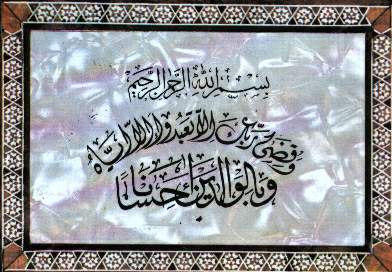 بسم الله الرحمن الرحيم
وقضى ربك ألا تعبدوا إلا إياه
وبالوالدين إحسانا